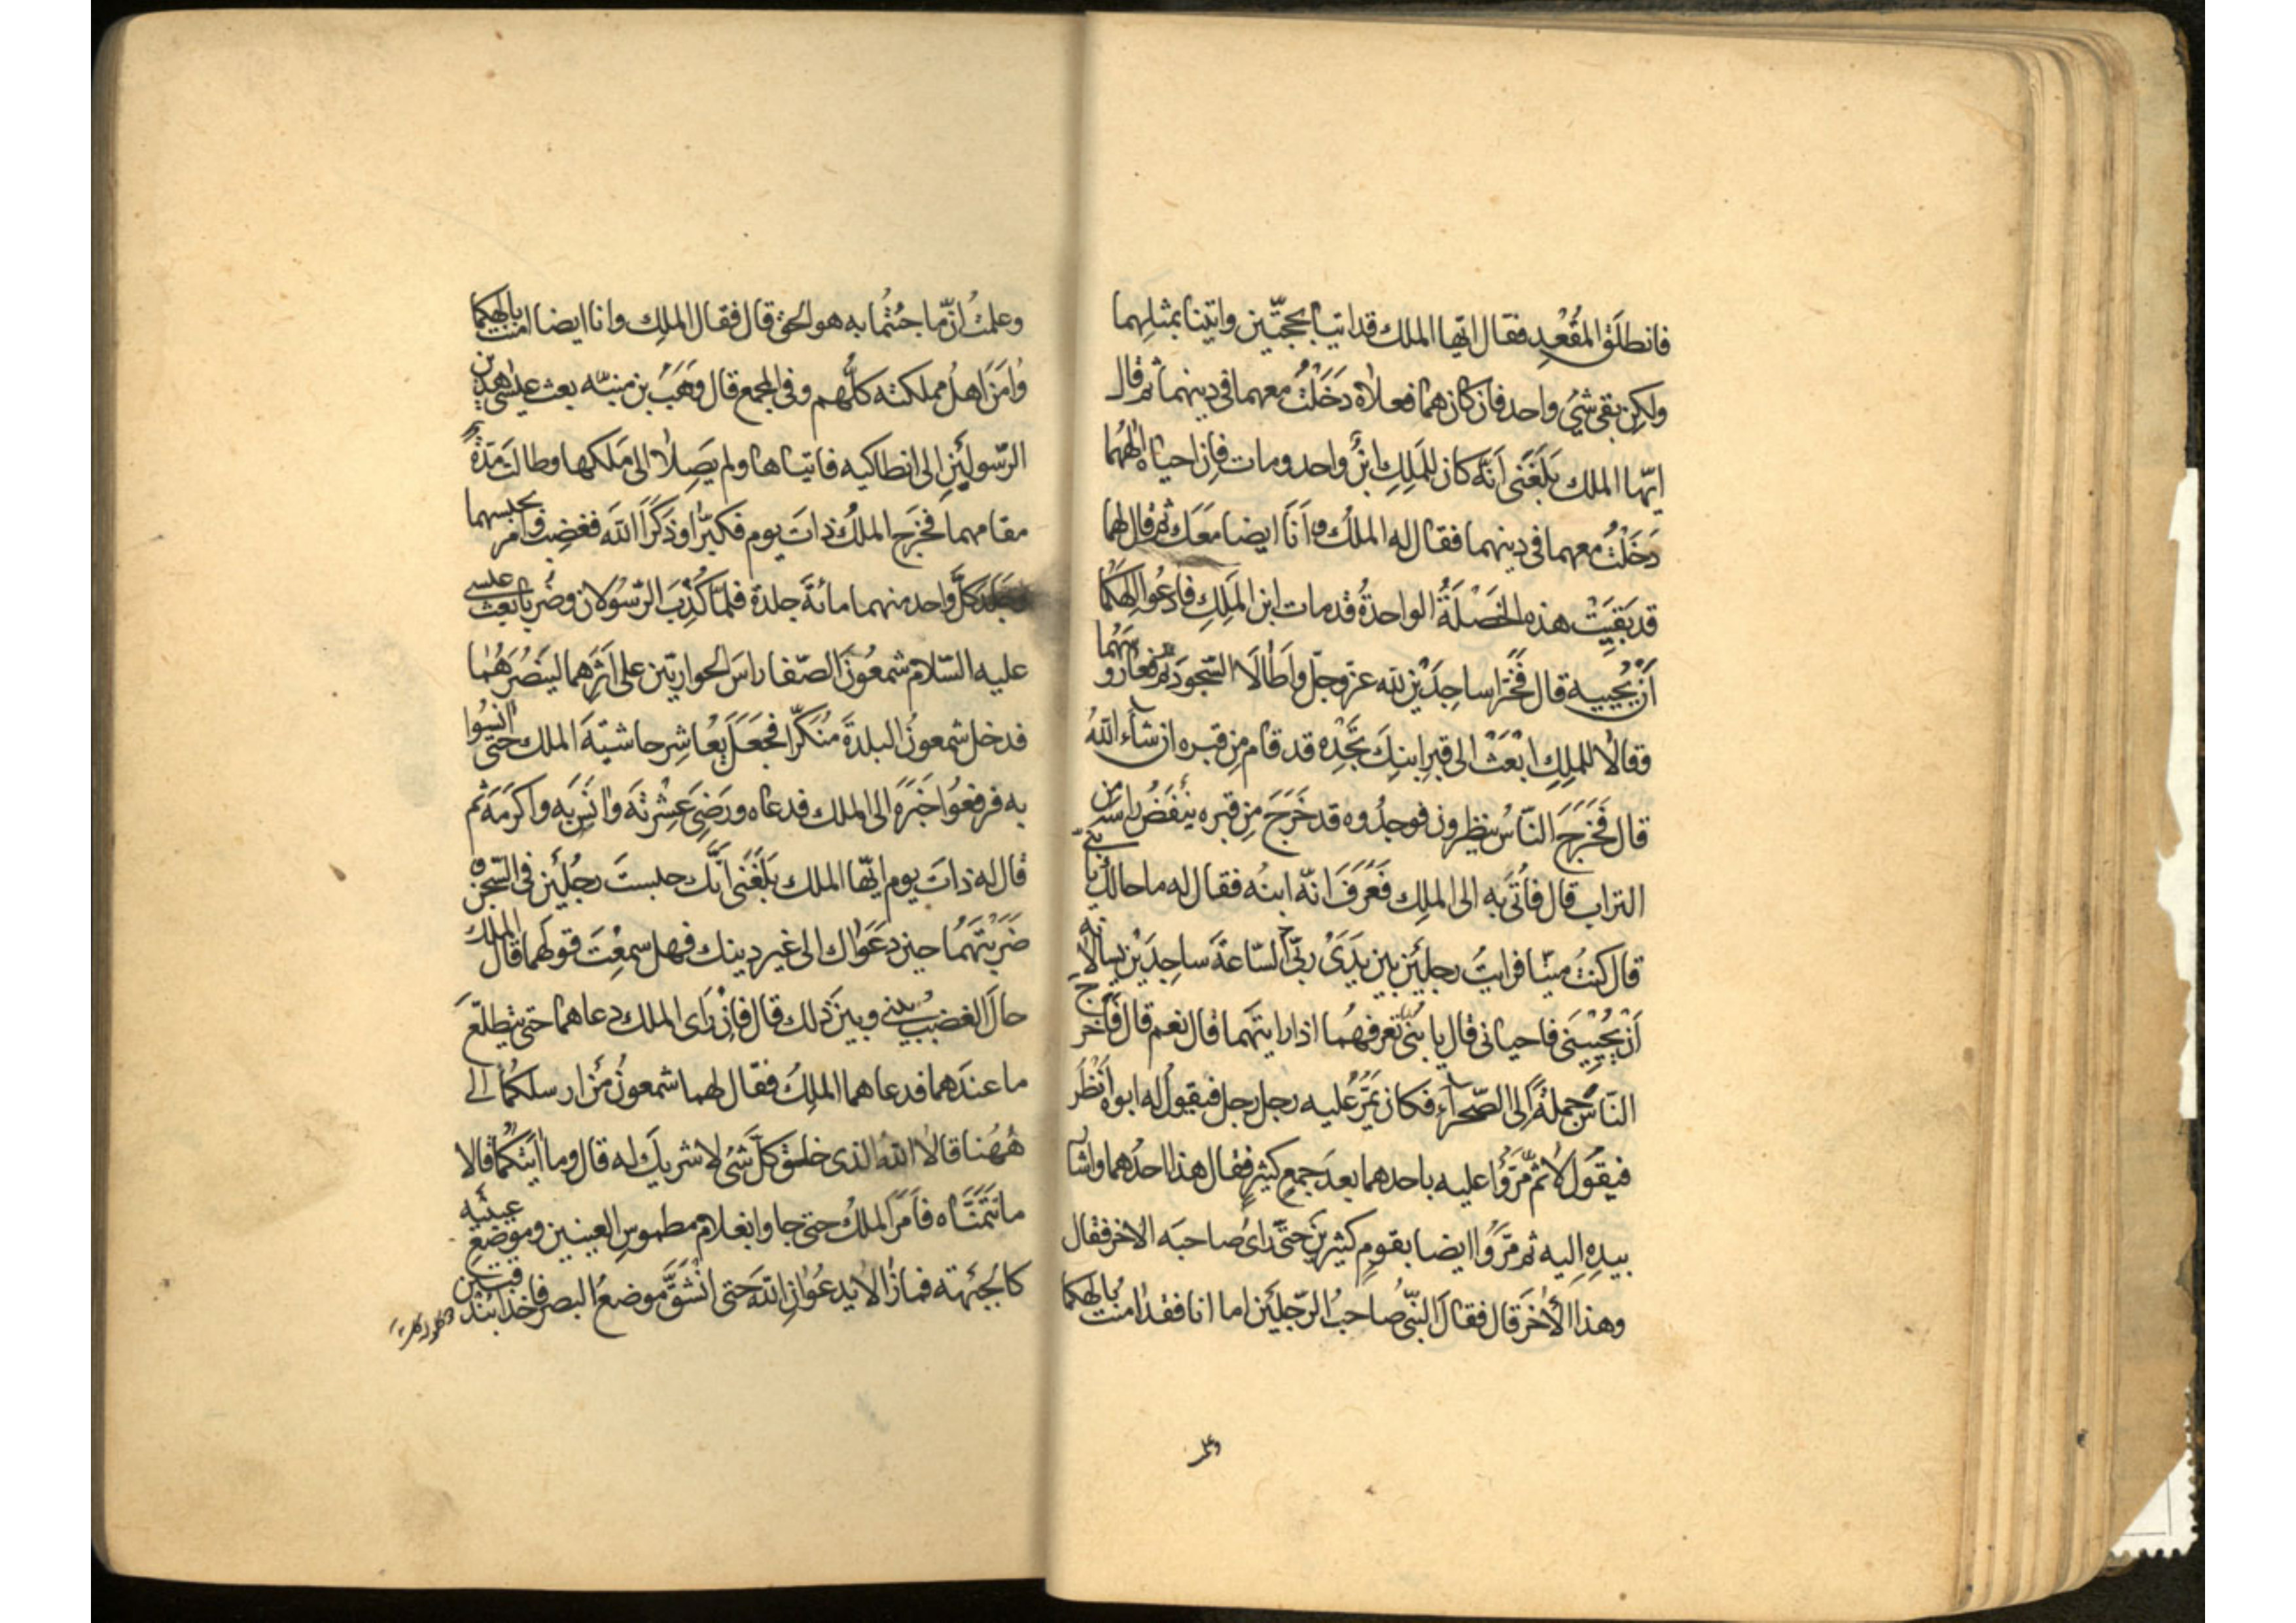 فانطلق المقعد فقال ايها الملك قد اتيا بحجتين واتينا بمثلهما
ولكن بقى شئ واحد فان كان هما فعلاه دخلت معهما فى دينهما ثم قال
ايها الملك بلغنى انه كان للملك ابن واحد ومات فان احياه الههما
دخلت معهما فى دينهما فقال له الملك وانا ايضا معك ثم قال لهما
قد بقيت هذه الخصلة الواحدة قد مات ابن الملك فادعوا الهكما
ان يحييه قال فخرا ساجدين لله عز وجل واطالا السجود ثم رفعا رؤسهما
وقالا للملك ابعث الى قبر ابنك تجده قد قام من قبره ان شاء الله
قال فخرج الناس ينظرون فوجدوه قد خرج من قبره ينفض راسه من
التراب قال فاتى به الى الملك فعرف انه ابنه فقال له ما حالك يا بنى
قال كنت ميتا فرايت رجلين بين يدى ربى الساعة ساجدين يسالانه
ان يحيينى فاحيانى قال يا بنى تعرفهما اذا رايتهما قال نعم قال فاخرج
الناس جملة الى الصحراء فكان يمر عليه رجل رجل فيقول له ابوه انظر
فيقول لا ثم مروا عليه باحدهما بعد جمع كثير فقال هذا احدهما واشار
بيده اليه ثم مروا ايضا بقوم كثيرين حتى راى صاحبه الاخر فقال
وهذا الاخر قال فقال النبى صاحب الرجلين اما انا فقد امنت بالهكما
وعلمت
وعلمت ان ما جئتما به هو الحق قال فقال الملك وانا ايضا امنت بالهكما
وامن اهل مملكته كلهم وفى المجمع قال وهب بن منبه بعث عيسى هذين
الرسولين الى انطاكيه فاتياها ولم يصلا الى ملكها وطالت مدة
مقامهما فخرج الملك ذات يوم فكبرا وذكرا الله فغضب وامر بحبسهما
وجلد كل واحد منهما مائة جلدة فلما كذب الرسولان وضربا بعث عيسى
عليه السلام شمعون الصفا راس الحواريين على اثرهما لينصرهما
فدخل شمعون البلدة منكرا فجعل يعاشر حاشية الملك حتى انسوا
به فرفعوا خبره الى الملك فدعاه ورضى عشرته وانس به واكرمه ثم
قال له ذات يوم ايها الملك بلغنى انك حبست رجلين فى السجن و
ضربتهما حين دعواك الى غير دينك فهل سمعت قولهما قال الملك
حال الغضب بينى وبين ذلك قال فان راى الملك دعاهما حتى يتطلع
ما عندهما فدعاهما الملك فقال لهما شمعون من ارسلكما الى
ههنا قالا الله الذى خلق كل شئ لا شريك له قال وما ايتكما قالا
ما تتمناه فامر الملك حتى جاوا بغلام مطموس العينين وموضع عينيه
كالجبهته فما زالا يدعوان الله حتى انشق موضع البصر فاخذا بندقتين